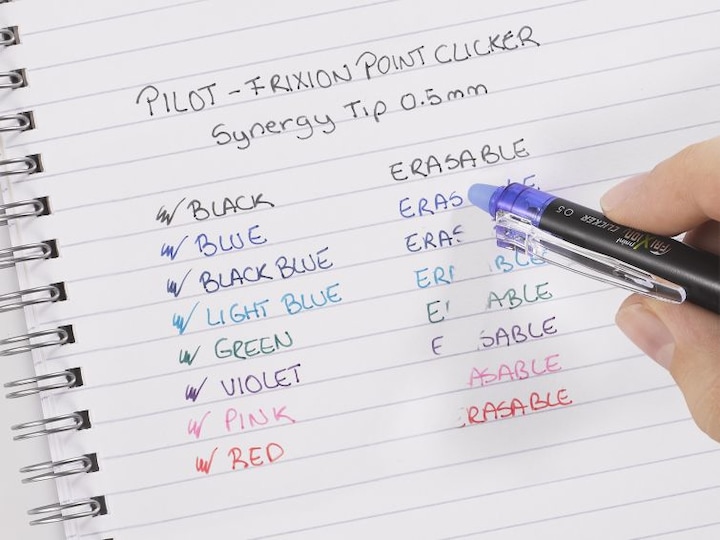 PILOT - FRIXION POINT CLICKER
Synergy Tip 0.5mm
ERASABLE
BLACK
BLUE ERAS LE
BLACK BLUE ERAS
LIGHT BLUE ER BLE
GREEN E ABLE
VIOLET E SABLE
PINK ASABLE
RED RASABLE
mini FRIXION CLICKER 0.5